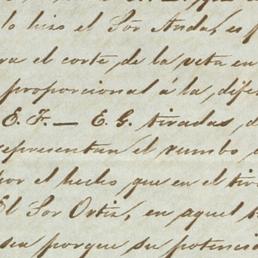 lo hizo el Sor Andas, es p
ra el corte de la veta en
proporcional á la, dife
E. F. — E. G. tiradas, d
representan el rumbo
por el hecho que en el tir
El Sor Ortiz, en aquel t
sea porque su potencia